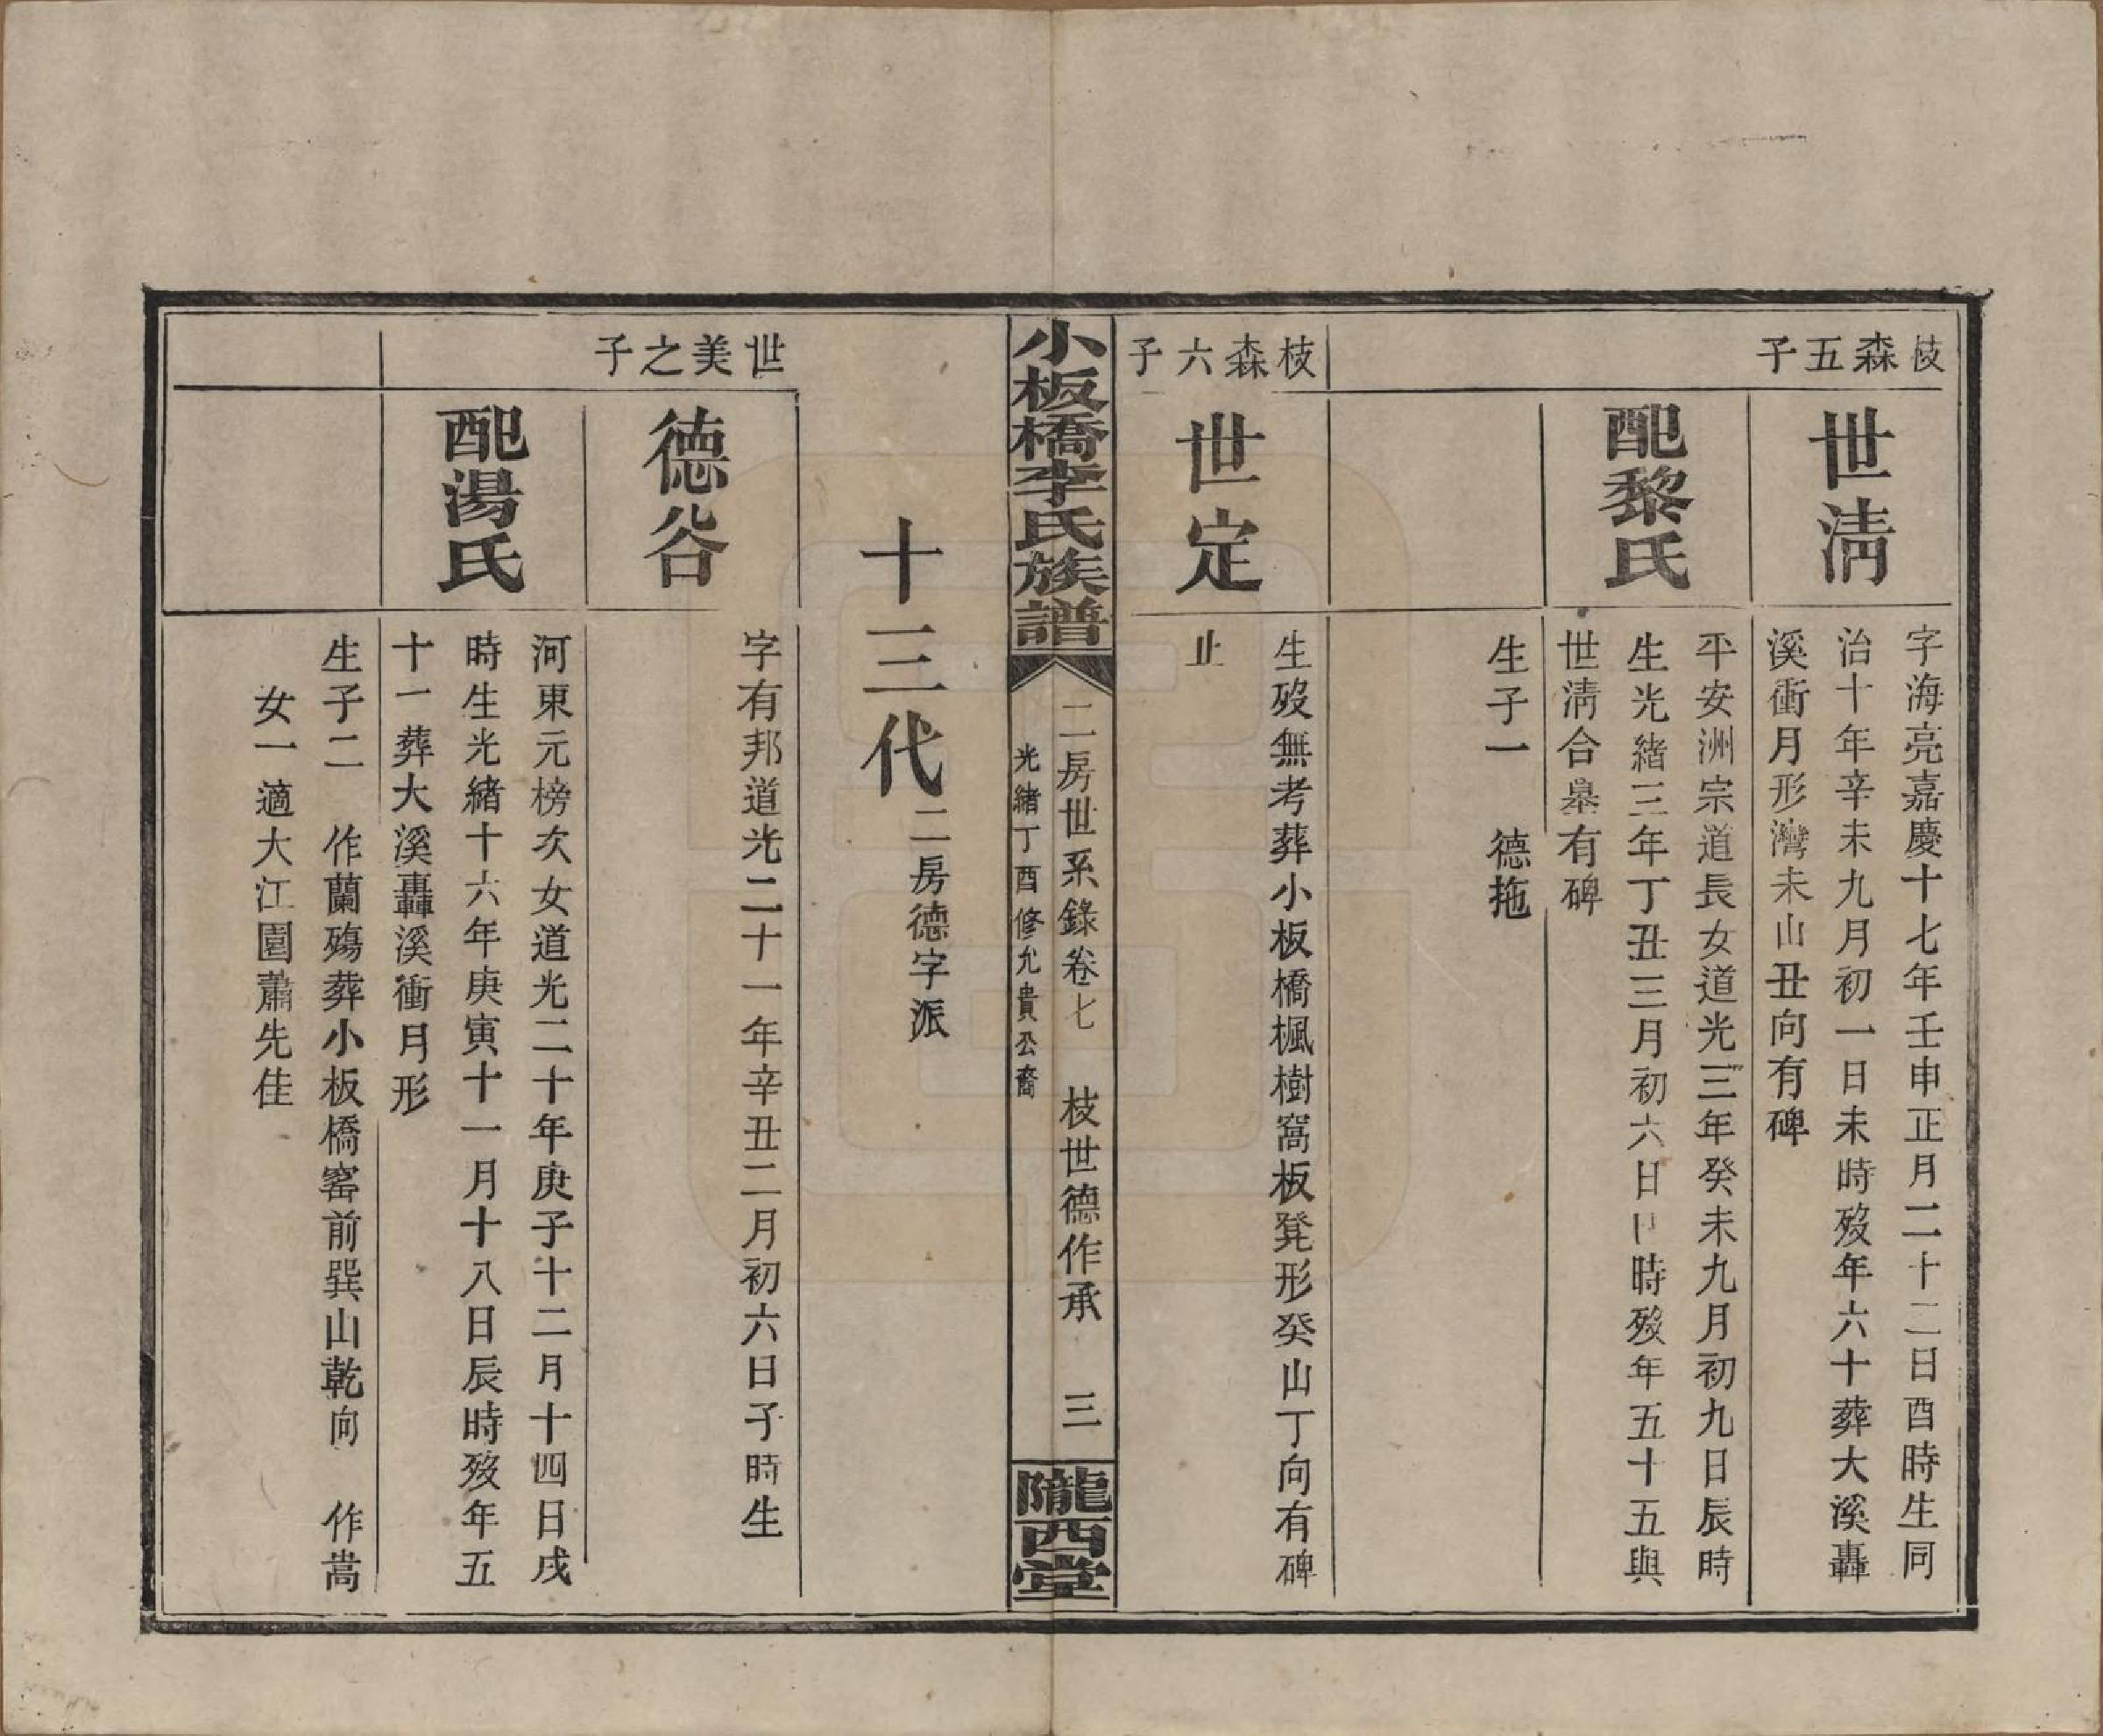 枝森五子
世淸
字海亮嘉慶十七年壬申正月二十二日酉時生同
治十年辛未九月初一日未時歿年六十葬大溪轟
溪衝月形灣未山丑向有碑
配黎氏
平安洲宗道長女道光三年癸未九月初九日辰時
生光緒三年丁丑三月初六日 時歿年五十五與
世淸合墓有碑
生子一　德拖
枝森六子
世定
生歿無考葬小板橋楓樹窩板凳形癸山丁向有碑
止
小板橋李氏族譜
二房世系錄卷七　枝世德作承　三
光緒丁酉修允貴公裔
隴西堂
十三代二房德字派
世美之子
德谷
字有邦道光二十一年辛丑二月初六日子時生
配湯氏
河東元榜次女道光二十年庚子十二月十四日戌
時生光緒十六年庚寅十一月十八日辰時歿年五
十一葬大溪轟溪衝月形
生子二　作蘭殤葬小板橋窰前巽山乾向　作嵩
女一適大江園蕭先佳